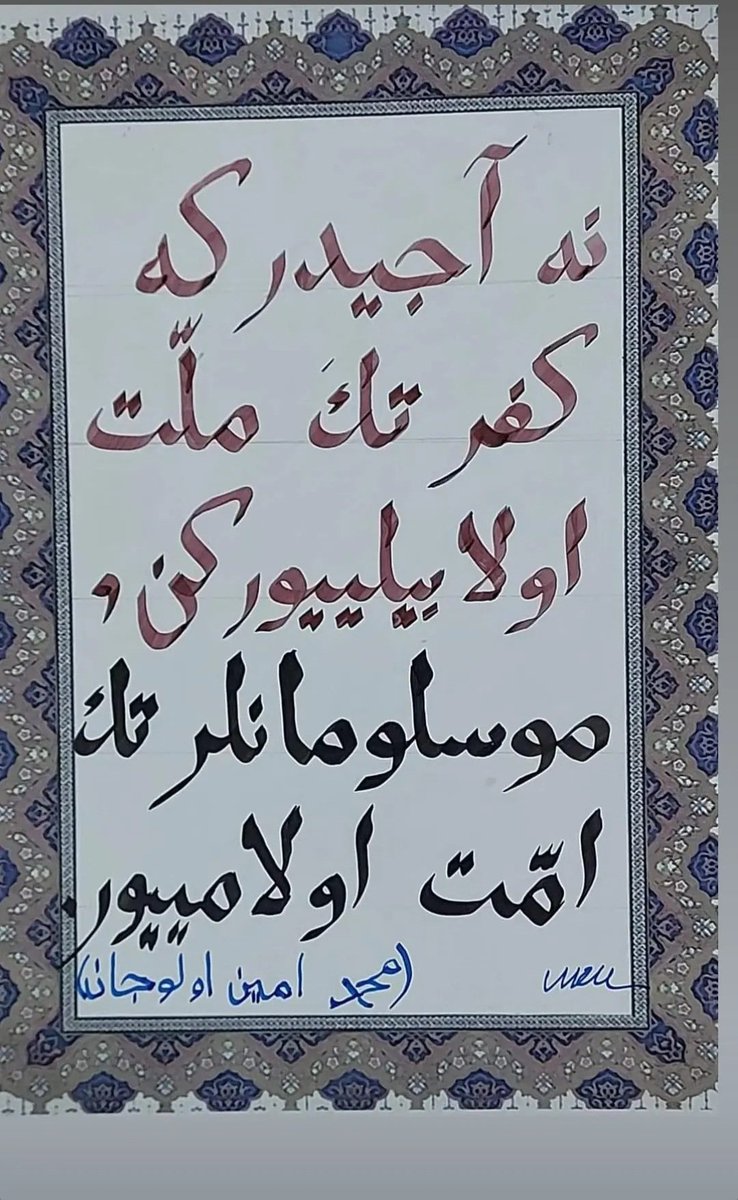 نه آجيدر كه
كفر تكَ ملّت
اولا بِيلييوركن,
موسلومانلر تك
امّت اولامييور.
(محمد امين اولوجان)